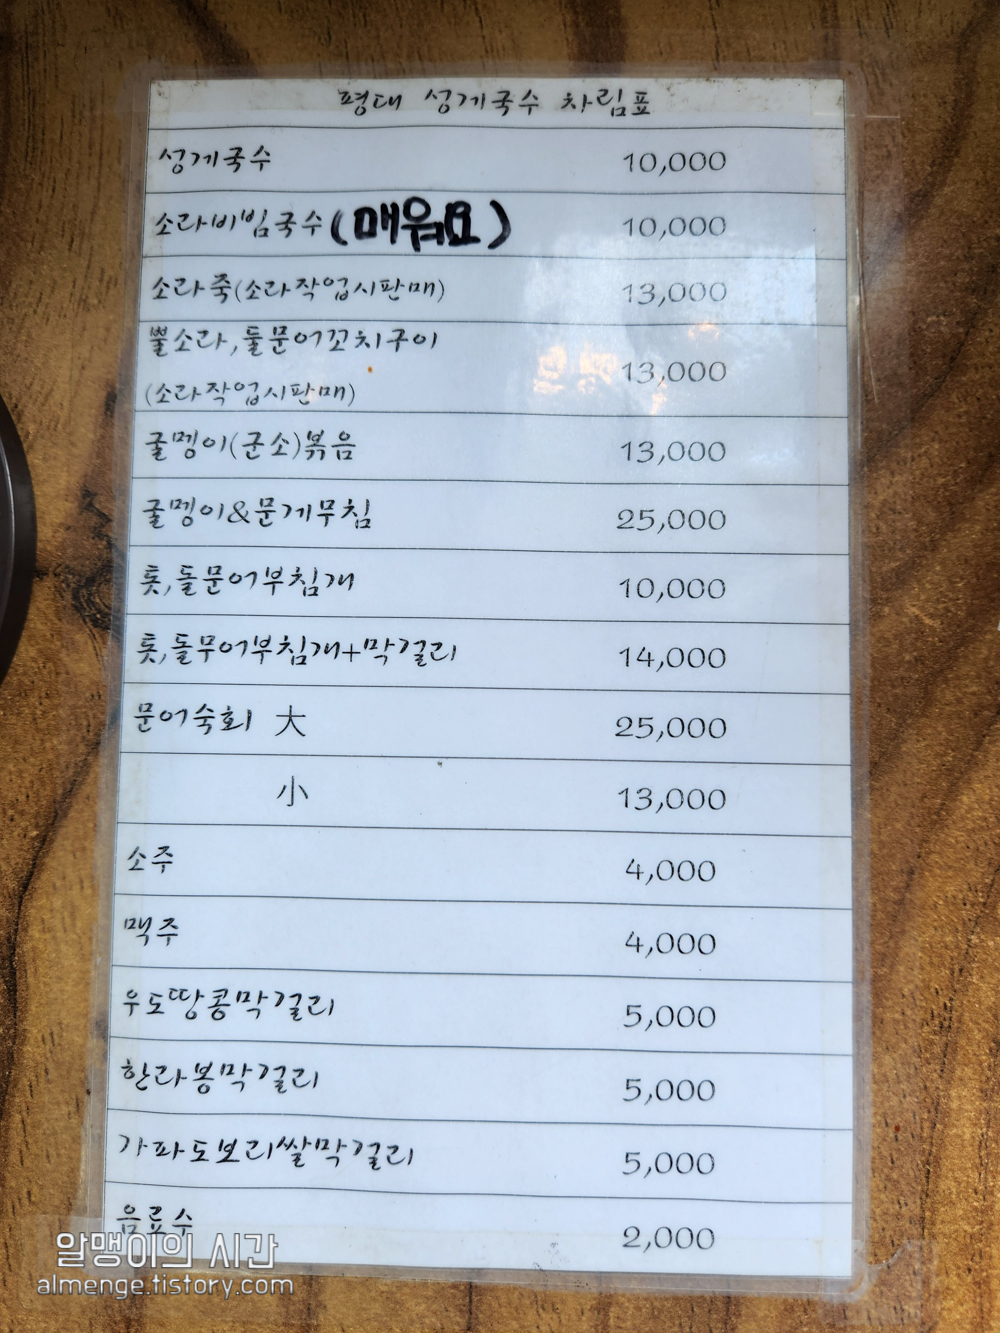 평대 성게국수 차림표
성게국수 10,000
소라비빔국수(매워요) 10,000
소라죽(소라작업시판매) 13,000
뿔소라,돌문어꼬치구이
(소라작업시판매) 13,000
굴멩이(군소)볶음 13,000
굴멩이&문게무침 25,000
톳,돌문어부침개 10,000
톳,돌무어부침개+막걸리 14,000
문어숙회 大 25,000
小 13,000
소주 4,000
맥주 4,000
우도땅콩막걸리 5,000
한라봉막걸리 5,000
가파도보리쌀막걸리 5,000
음료수 2,000
알맹이의 시간
almenge.tistory.com